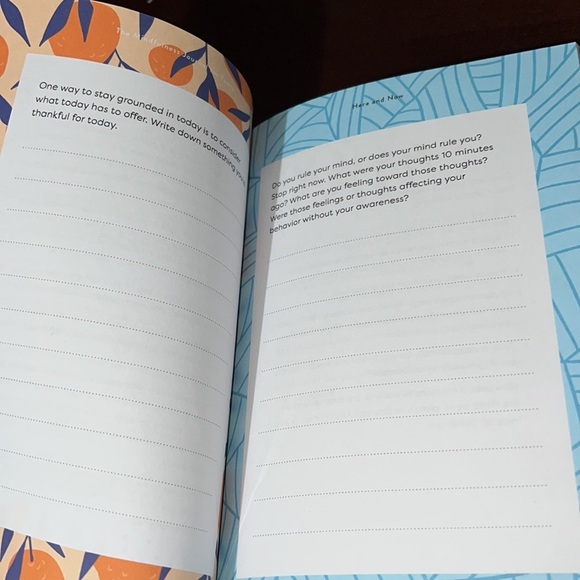 The Mindfulness Jour
One way to stay grounded in today is to consider
what today has to offer. Write down something you
thankful for today.
Here and Now
Do you rule your mind, or does your mind rule you?
Stop right now. What were your thoughts 10 minutes
ago? What are you feeling toward those thoughts?
Were those feelings or thoughts affecting your
behavior without your awareness?